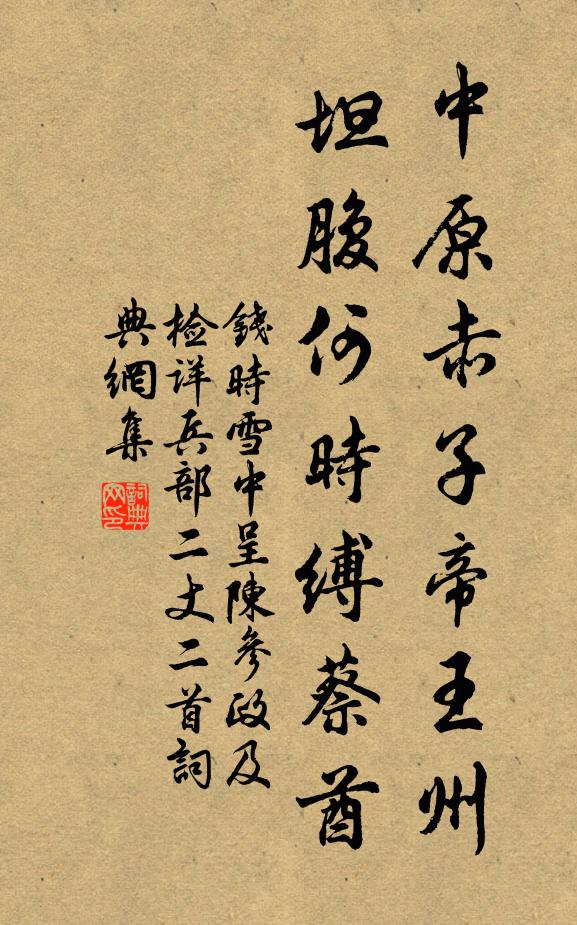 中原赤子帝王州
坦腹何時縛蔡酋
錢時雪中呈陳參政及
檢詳兵部二丈二首詞
典網集
詞典網印